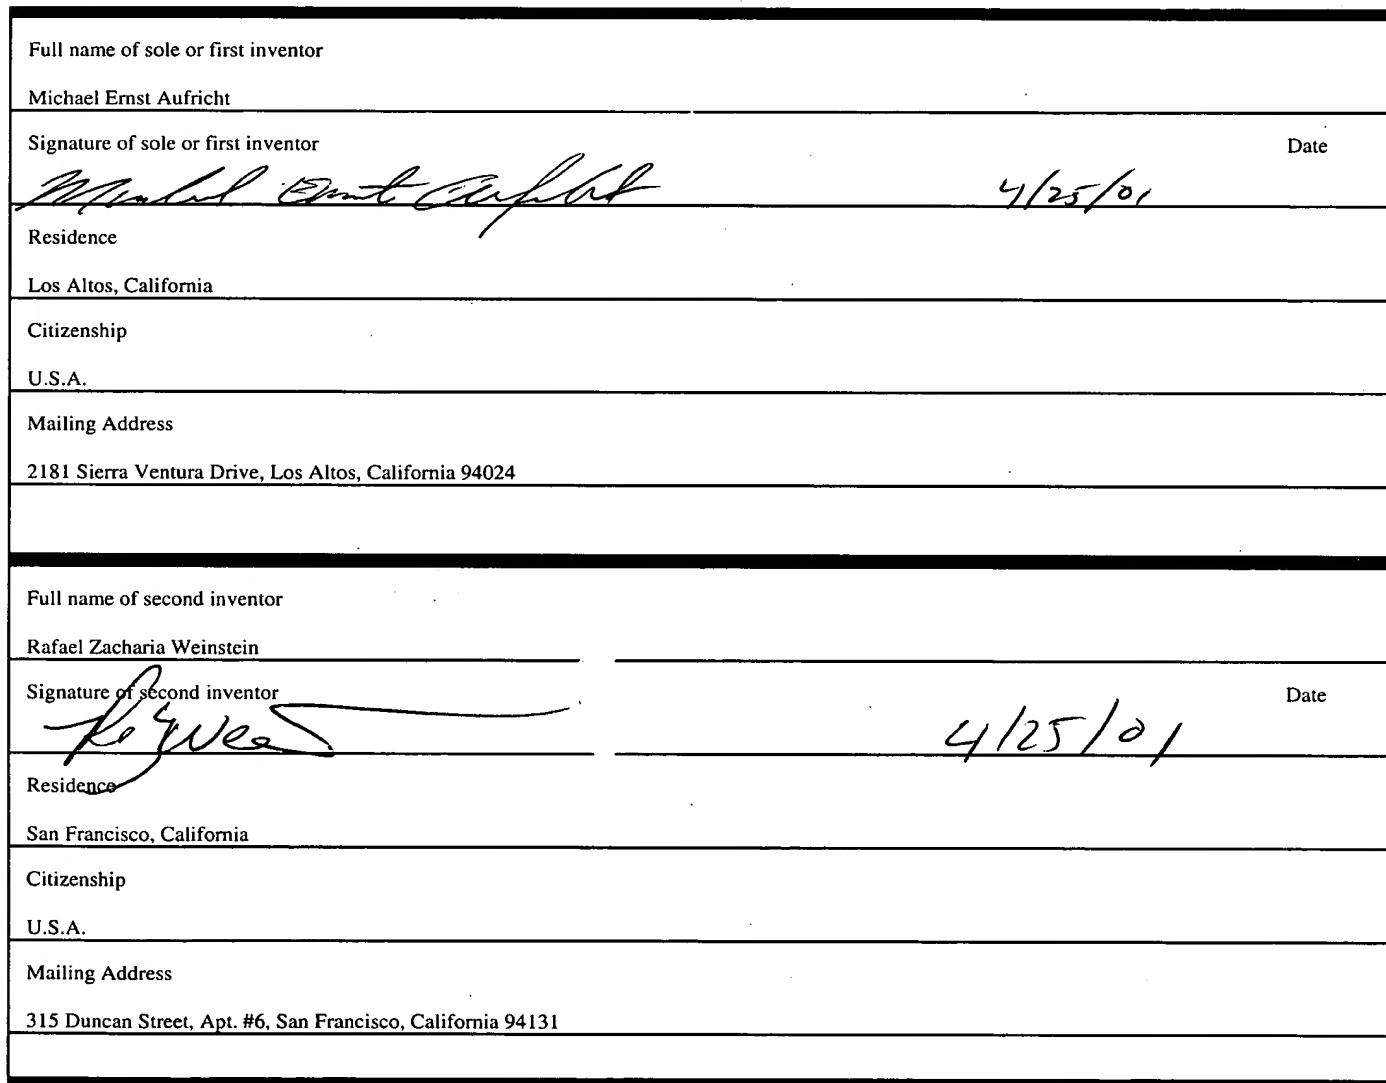 Full name of sole or first inventor
Michael Ernst Aufricht
Signature of sole or first inventor Date
Michael Ernst Aufricht 4/25/01
Residence
Los Altos, California
Citizenship
U.S.A.
Mailing Address
2181 Sierra Ventura Drive, Los Altos, California 94024
Full name of second inventor
Rafael Zacharia Weinstein
Signature of second inventor Date
4/25/01
Residence
San Francisco, California
Citizenship
U.S.A.
Mailing Address
315 Duncan Street, Apt. #6, San Francisco, California 94131